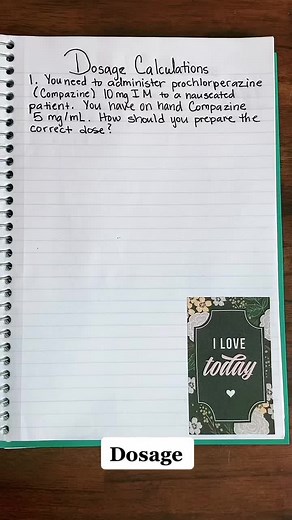 Dosage Calculations
1. You need to administer prochlorperazine
(Compazine) 10 mg IM to a nauseated
patient. You have on hand Compazine
5 mg/mL. How should you prepare the
correct dose?
I LOVE
today
Dosage